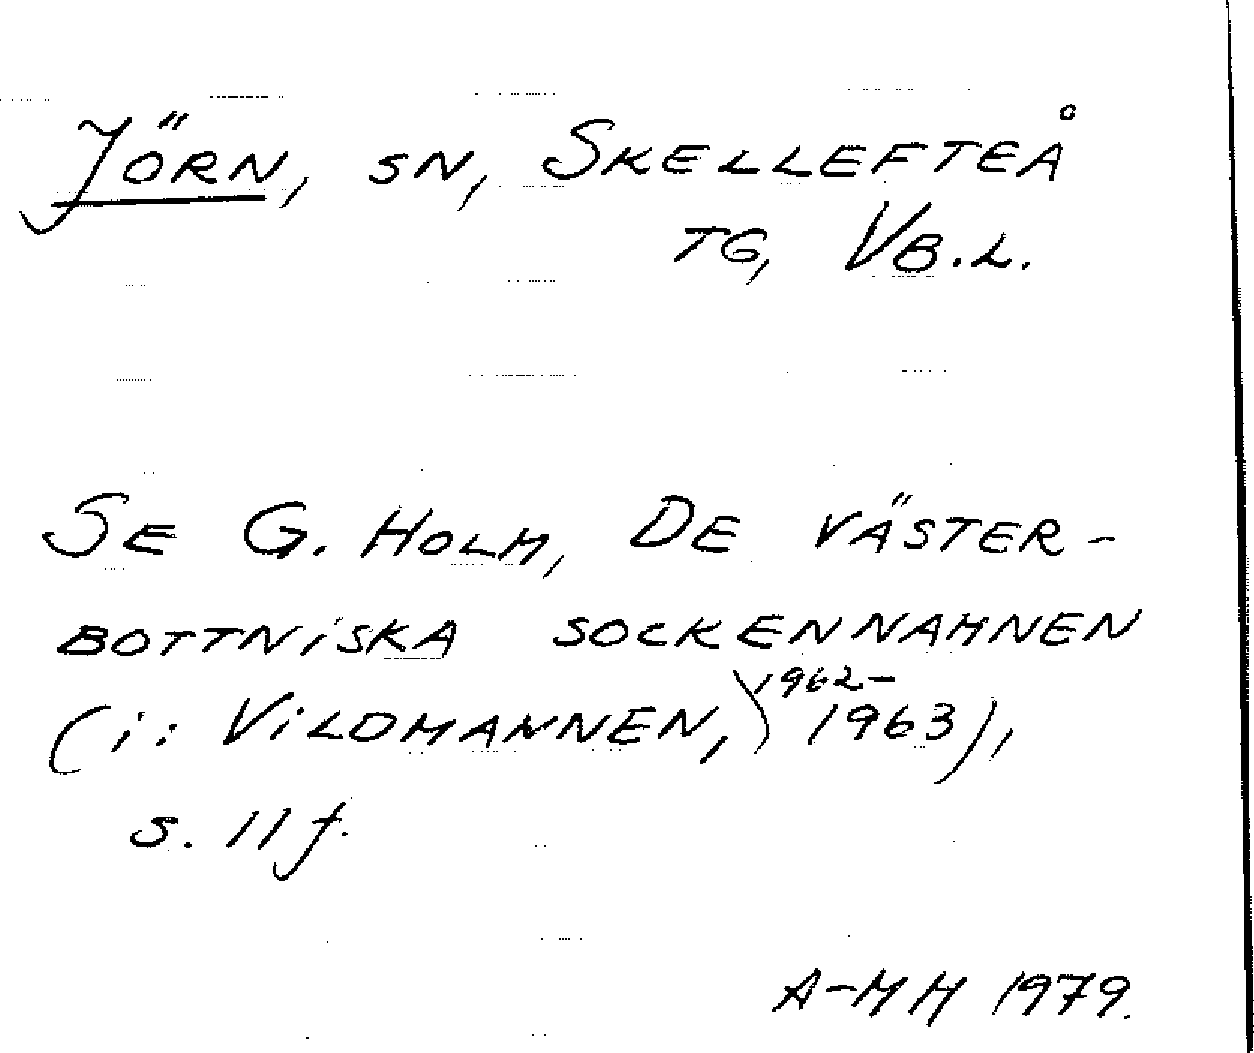 Jörn, sn, Skellefteå
tg, Vb.l.
Se G. Holm, De väster-
bottniska sockennamnen
(i: Vildmannen, 1962-
1963),
s. 11 f.
A-MH 1979.